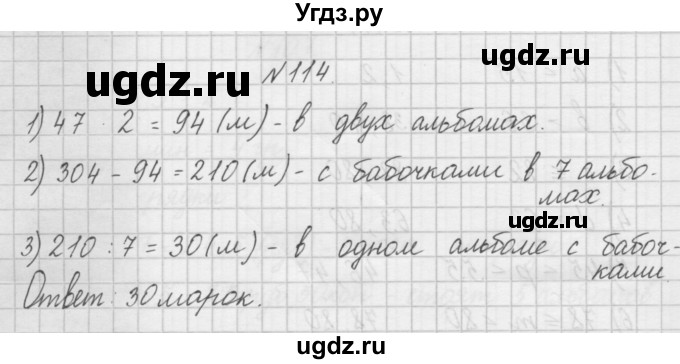 Угдз.ру
ugdz.ru
ugdz.ru
№114.
1) 47 · 2 = 94 (м) - в двух альбомах.
2) 304 - 94 = 210 (м) - с бабочками в 7 альбо-
мах.
ugdz.ru
3) 210 : 7 = 30 (м) - в одном альбоме с бабоч-
ками.
Ответ: 30 марок.
ugdz.ru
ugdz.ru